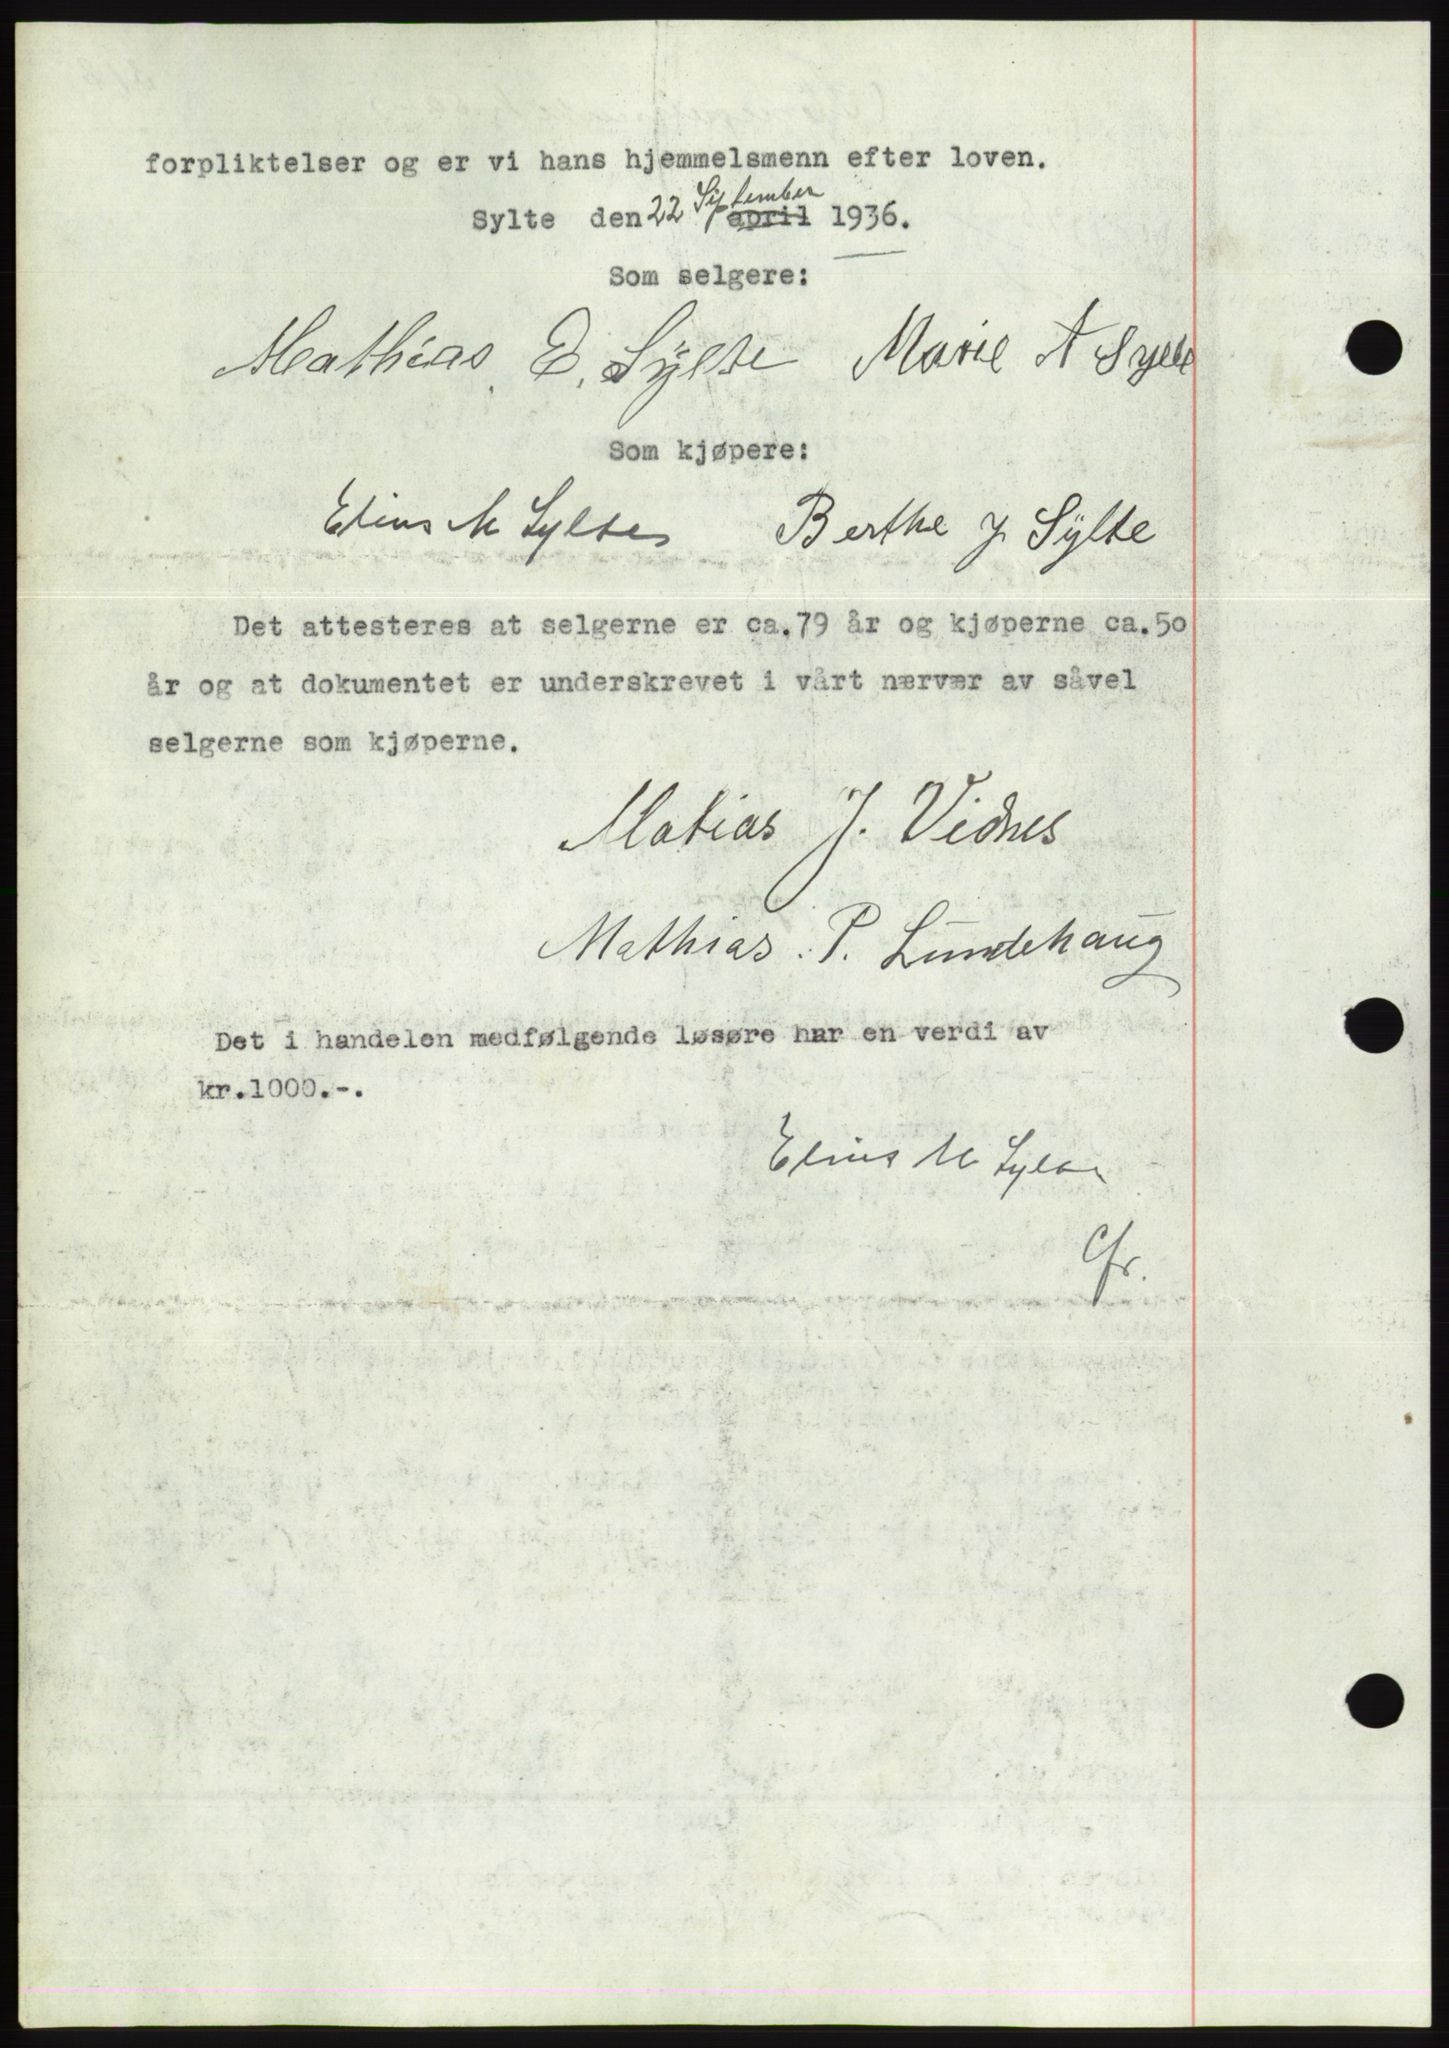 forpliktelser og er vi hans hjemmelsmenn efter loven.
September
Sylte den 22 april 1936.
Som selgere:
Mathias E. Sylte Marie A Sylte
Som kjøpere:
Elius M Sylte Berthe J Sylte
Det attesteres at selgerne er ca.79 år og kjøperne ca.50
år og at dokumentet er underskrevet i vårt nærvær av såvel
selgerne som kjøperne.
Matias J. Vidnes
Mathias P. Lundehaug
Det i handelen medfølgende løsøre har en verdi av
kr.1000.-.
Elius M Sylte